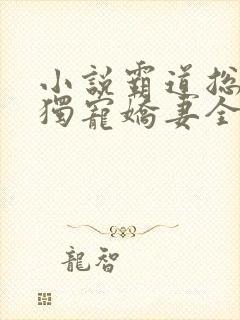 小説霸道总
獨寵嬌妻全
龍智